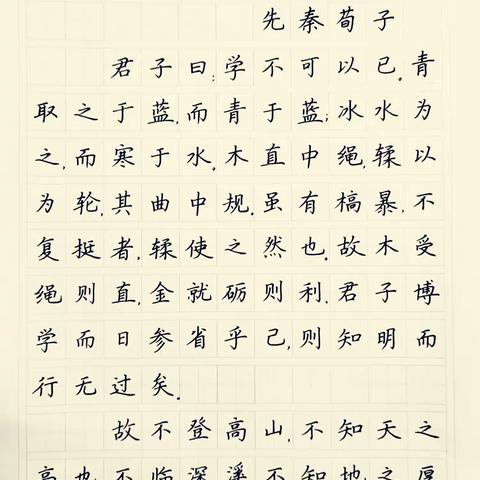 先秦荀子
君子曰:学不可以已.青
取之于蓝,而青于蓝;冰水为
之,而寒于水.木直中绳,𫐓以
为轮,其曲中规.虽有槁暴,不
复挺者,𫐓使之然也.故木受
绳则直,金就砺则利.君子博
学而日参省乎己,则知明而
行无过矣.
故不登高山,不知天之
高也;不临深溪,不知地之厚